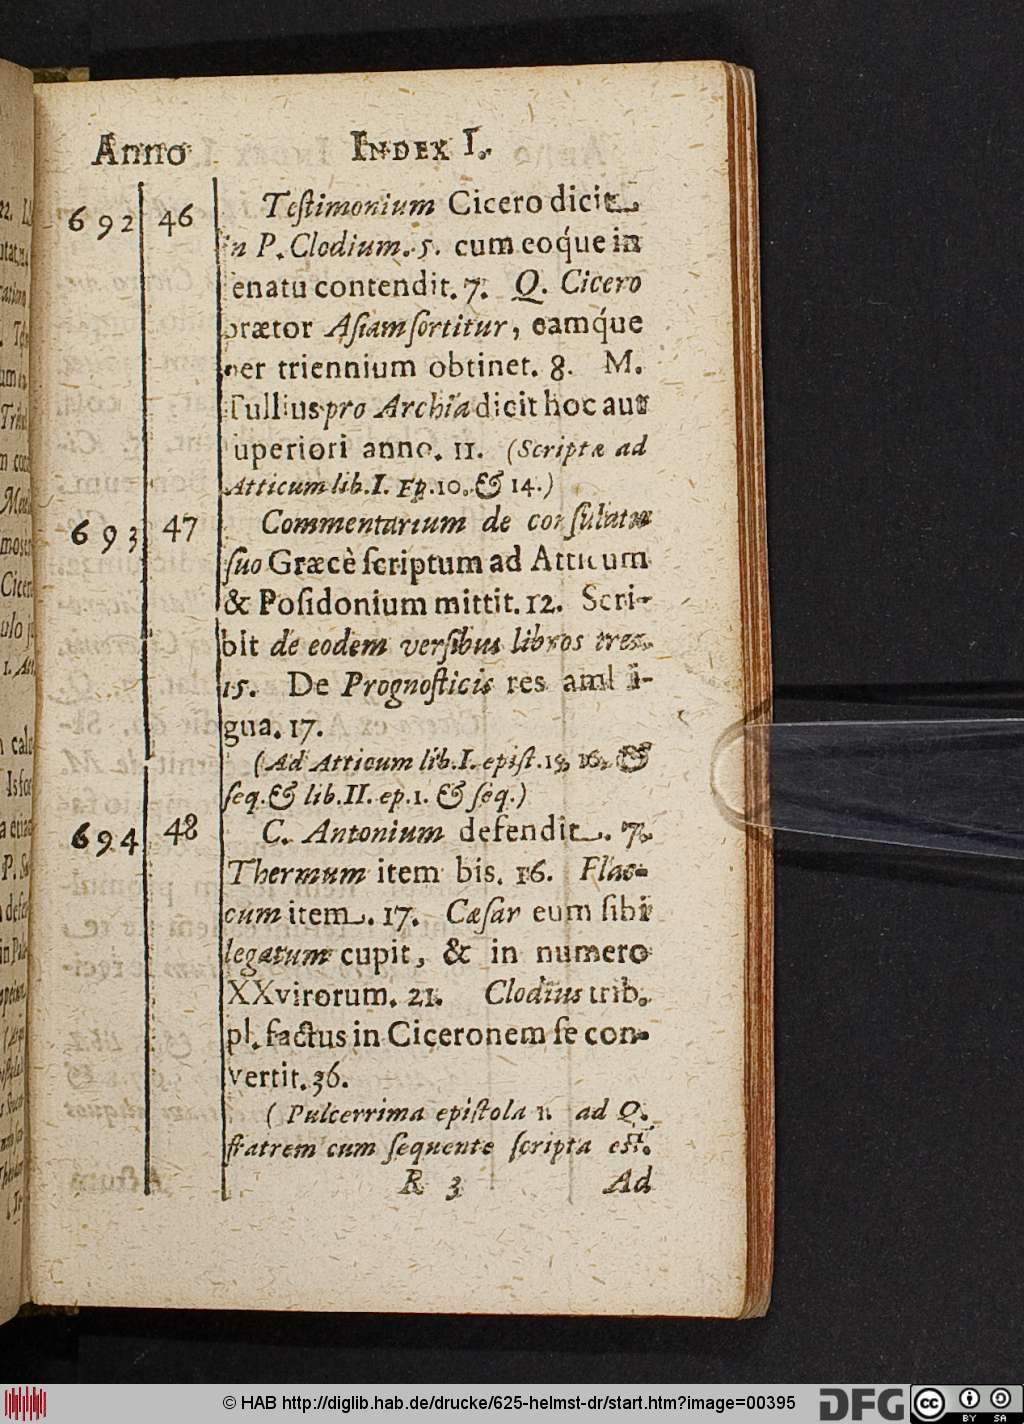 Anno INDEX I.
692 46 Teſtimonium Cicero dicit
in P. Clodium. 5. cum eoq́ue in
ſenatu contendit. 7. Q. Cicero
prætor Aſiam ſortitur, eamq́ue
per triennium obtinet. 8. M.
Tullius pro Archia dicit hoc aut
ſuperiori anno. 11. (Scriptæ ad
Atticum lib. I. Ep. 10. & 14.)
693 47 Commentarium de conſulatu
ſuo Græcè ſcriptum ad Atticum
& Poſidonium mittit. 12. Scri-
bit de eodem verſibus libros tres.
15. De Prognoſticis res ambi-
gua. 17.
(Ad Atticum lib. I. epiſt. &
ſeq. & lib. II. ep. 1. & ſeq.)
694 48 C. Antonium defendit. 7.
Thermum item bis. 16. Flac-
cum item. 17. Cæſar eum ſibi
legatum cupit, & in numero
XXvirorum. 21. Clodius trib.
pl. factus in Ciceronem ſe con-
vertit. 36.
(Pulcerrima epiſtola ad Q.
fratrem cum ſequente ſcripta eſt.
R 3 Ad
© HAB http://diglib.hab.de/drucke/625-helmst-dr/start.htm?image=00395
DFG
cc
BY SA